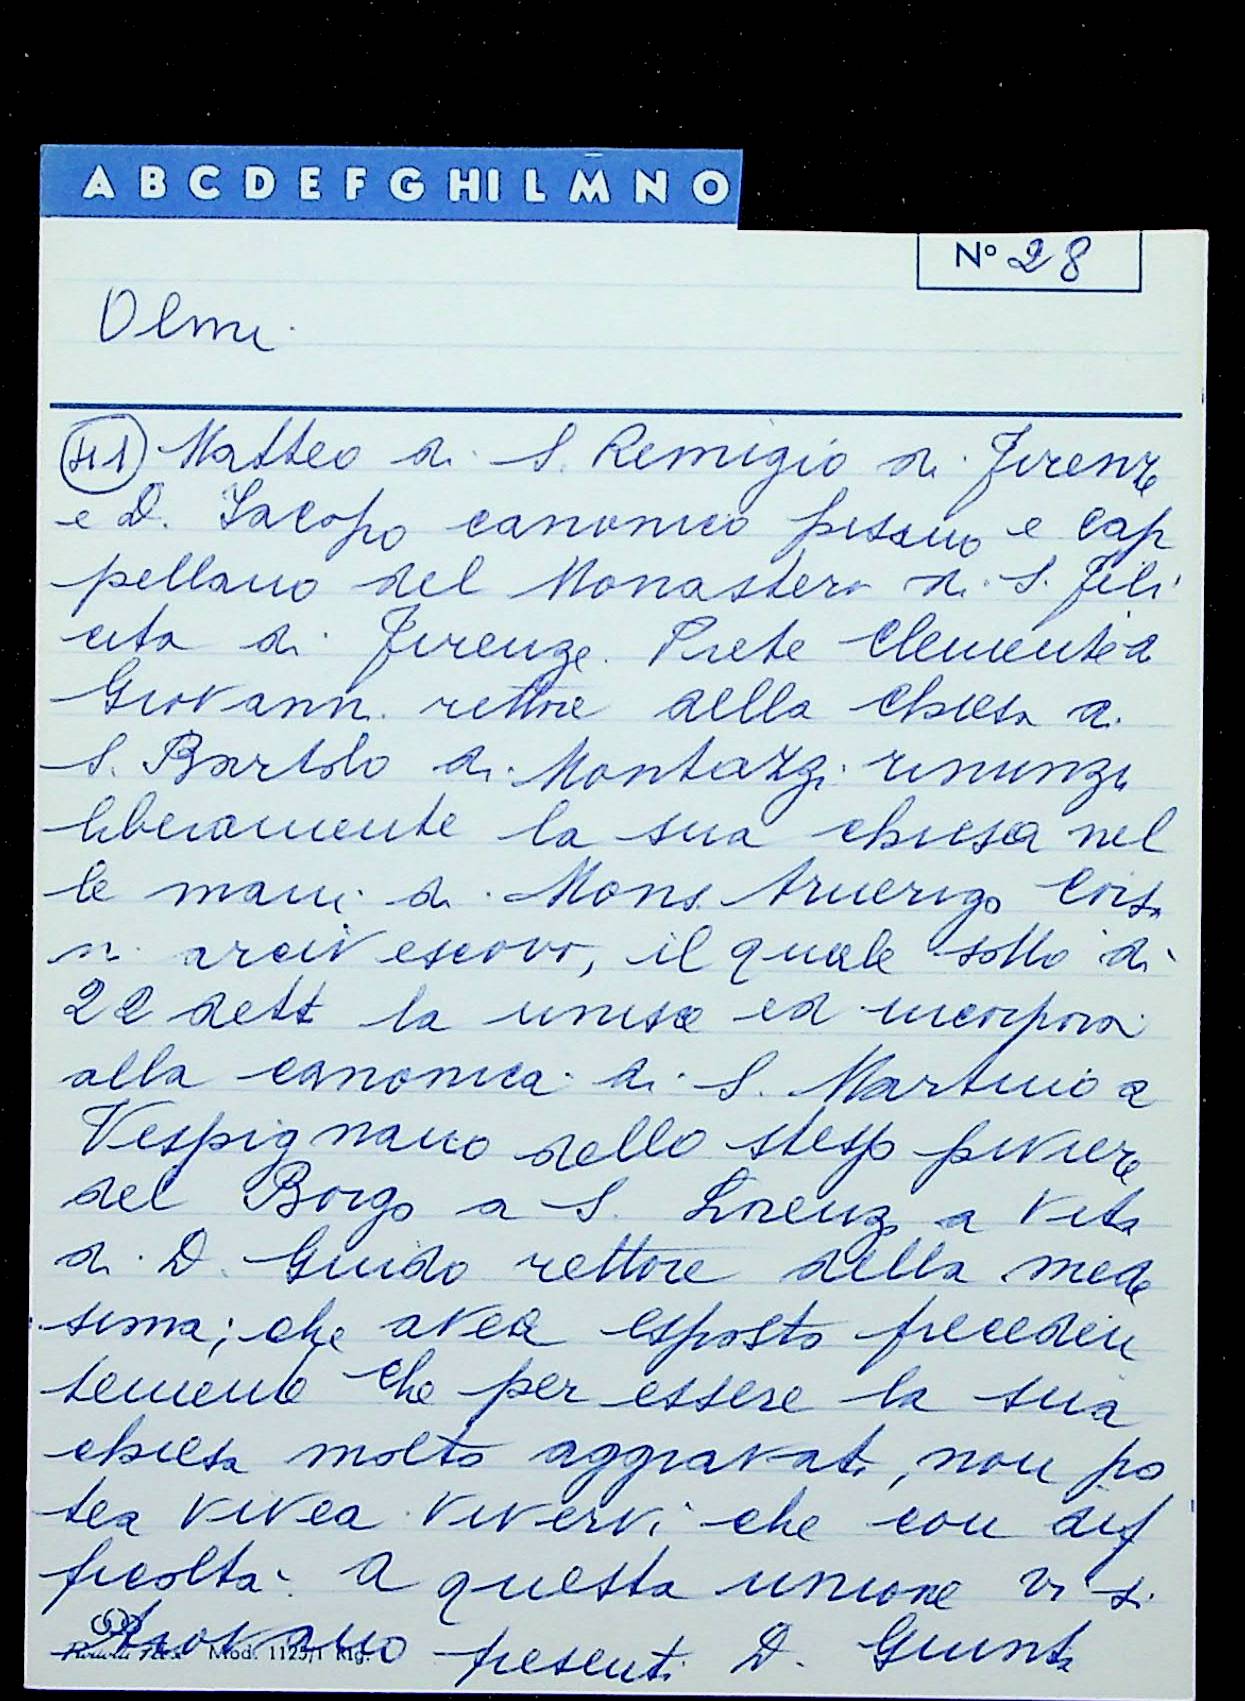 A B C D E F G HI L M N O
N° 28
Olmi
Matteo di S. Remigio di Firenze
e D. Iacopo canonico pisano e cap
pellano del Monastero di S. Feli
cita di Firenze. Prete Clemente d
Giovanni rettore della chiesa di
S. Bartolo di Montazzi rinunzi
liberamente la sua chiesa nel
le mani di Mons. Amerigo Corsi
ni arcivescovo, il quale sotto di
22 dett la unisce ed incorpora
alla canonica di S. Martino a
Vespignano dello stesso piviere
del Borgo a S. Lorenzo a vita
di D. Guido rettore della mede
sima; che avea esposto preceden
temente che per essere la sua
chiesa molto aggravata, non po
tea vivea vivervi che con dif
ficoltà. A questa unione vi si
trovano presenti D. Giunta
Mod. 1125/1 Rig.